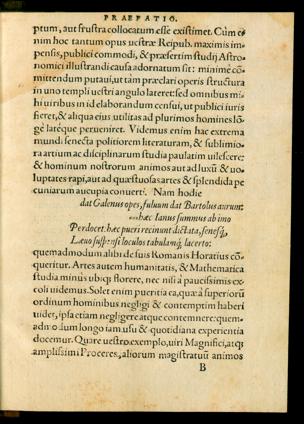 PRAEFATIO.
ptum, aut frustra collocatum esse existimet. Cum e
nim hoc tantum opus uestræ Reipub. maximis im
pensis, publici commodi, & præsertim studij Astro
nomici illustrandi causa adornatum sit: minimè cõ
mittendum putaui, ut tàm præclari operis structura
in uno templi uestri angulo lateret: sed omnibus mi
hi uiribus in id elaborandum censui, ut publici iuris
fieret, & aliqua eius utilitas ad plurimos homines lõ
gè latéque perueniret. Videmus enim hac extrema
mundi senecta politiorem literaturam, & sublimio
ra artium ac disciplinarum studia paulatim uilescere:
& hominum nostrorum animos aut ad luxũ & uo
luptates rapi, aut ad quæstuosas artes & splendida pe
cuniarum aucupia conuerti. Nam hodie
dat Galenus opes, fuluum dat Bartolus aurum:
hæc Ianus summus ab imo
Perdocet: hæc pueri recinunt dictata, senesq́;
Læuo suspensi loculos tabulamq́; lacerto:
quemadmodum alibi de suis Romanis Horatius cõ-
queritur. Artes autem humanitatis, & Mathematica
studia minùs ubiq; florere, nec nisi à paucissimis ex-
coli uidemus. Solet enim pueritia ea, quæ à superiorũ
ordinum hominibus negligi & contemptim haberi
uidet, ipsa etiam negligere atque contemnere: quem-
admodum longo iam usu & quotidiana experientia
docemur. Quare uestro exemplo, uiri Magnifici, atq;
amplissimi Proceres, aliorum magistratuũ animos
B